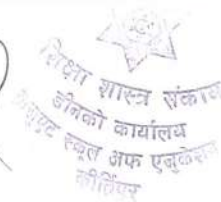 शिक्षा शास्त्र संकाय
डीनको कार्यालय
स्कूल अफ एजुकेशन
कीर्तिपुर